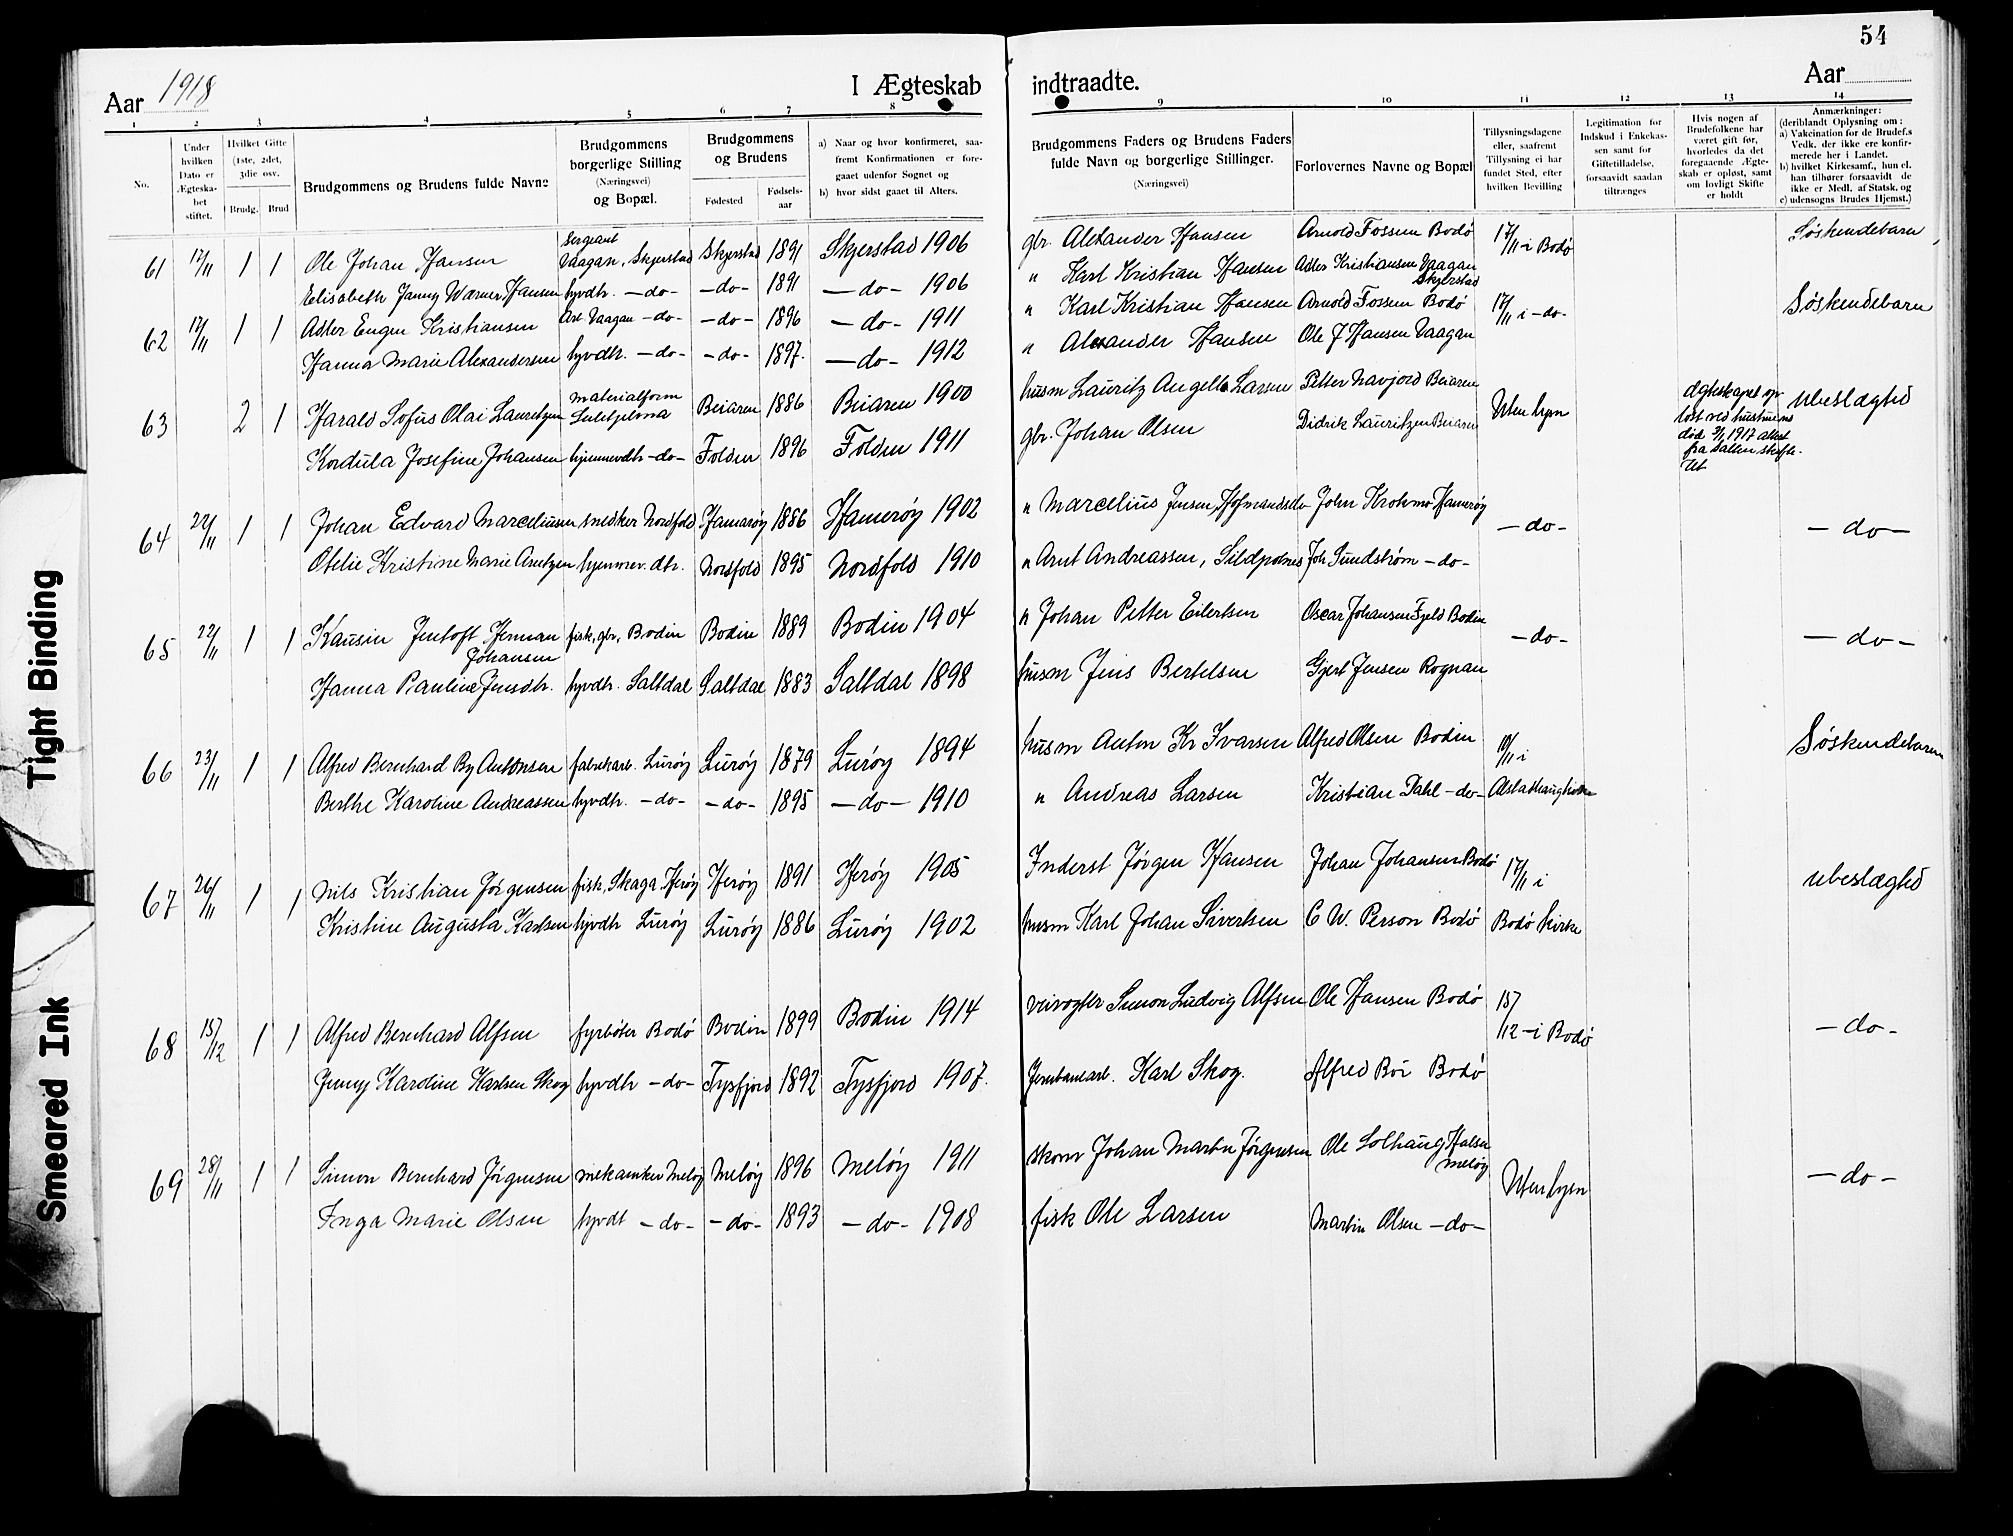 54
Aar 1918
I Ægteskab
indtraadte.
Aar
1 2 3 4 5 6 7 8 9 10 11 12 13 14
No.
Under hvilken Dato er Ægteskabet stiftet.
Hvilket Gifte (1ste, 2det, 3die osv.
Brudg. Brud
Brudgommens og Brudens fulde Navne
Brudgommens borgerlige Stilling (Næringsvei) og Bopæl.
Brudgommens og Brudens
Fødested
Fødsels-aar
a) Naar og hvor konfirmeret, saafremt Konfirmationen er foregaaet udenfor Sognet og
b) hvor sidst gaaet til Alters.
Brudgommens Faders og Brudens Faders fulde Navn og borgerlige Stillinger.
(Næringsvei)
Forlovernes Navne og Bopæl
Tillysningsdagene eller, saafremt Tillysning ei har fundet Sted, efter hvilken Bevilling
Legitimation for Indskud i Enkekassen samt for Giftetilladelse, forsaavidt saadan tiltrænges
Hvis nogen af Brudefolkene har været gift før, hvorledes da det foregaaende Ægteskab er opløst, samt om lovligt Skifte er holdt
Anmærkninger:
(deriblandt Oplysning om:
a) Vakcination for de Brudef.s Vedk. der ikke ere konfirmerede her i Landet.
b) hvilket Kirkesamf., hun el. han tilhører forsaavidt de ikke er Medl. af Statsk. og
c) udensogns Brudes Hjemst.)
61 17/11 1 1 Ole Johan Hansen Sergeant Vaagan, Skjerstad Skjerstad 1891 Skjerstad 1906 gbr. Alexander Hansen Arnold Fossum Bodø 17/11 i Bodø Søskendebarn
Elisabeth Janny Warner Hansen hyvdtr. -do- -do- 1891 -do- 1906 " Karl Kristian Hansen Adler Kristiansen Vaagan Skjerstad
62 17/11 1 1 Adler Eugen Kristiansen Arb. Vaagan -do- -do- 1896 -do- 1911 " Karl Kristian Hansen Arnold Fossum Bodø 17/11 i -do- Søskendebarn
Hanna Marie Alexandersen hyvdtr. -do- -do- 1897. -do- 1912 " Alexander Hansen Ole J Hansen Vaagan
63 2 1 Harald Sofus Olai Lauritzen materialform Sulitjelma Beiaren 1886 Beiaren 1900 husm Lauritz Angell Larsen Petter Navjord Beiaren Uten lysn Ægteskapet opløst ved hustruens død 9/1 1917 attest fra Salten skifteret Ubeslægted
Kordula Josefine Johansen hjemmevdtr -do- Folden 1896 Folden 1911 gbr. Johan Olsen Didrik Lauritzen Beiaren
64 22/11 1 1 Johan Edvard Marceliussen snedker Nordfold Hamarøy 1886 Hamerøy 1902 " Marcelius Jensen, John Hamerøy -do- -do-
Otelie Kristine Marie Arntzen hjemmev. dtr. Nordfold 1895 Nordfold 1910 " Arnt Andreassen, Sildpolnes Joh Sundstrøm -do-
65 22/11 1 1 Hausin Jentoft Herman Johansen fisk, gbr, Bodin Bodin 1889 Bodin 1904 " Johan Petter Eilertsen Oscar Johansen Fjeld Bodin -do- -do-
Hanna Pauline Jensdtr. hyvdtr. Saltdal Saltdal 1883 Saltdal 1898 husm Jens Bertelsen Gjert Jensen Rognan
66 23/11 1 1 Alfred Bernhard By Antonsen fabrikarb. Lurøy Lurøy 1879 Lurøy 1894 husm Anton Kr Ivarsen Alfred Olsen Bodin 10/11 i Søskendebarn
Berthe Karoline Andreassen hyvdtr. -do- -do- 1895 -do- 1910 " Andreas Larsen Kristian Dahl -do- Alstadhaug kirke
67 26/11 1 1 Nils Kristian Jørgensen fisk, Skaga Herøy Herøy 1891 Herøy 1905 Inderst Jørgen Hansen Johan Johansen Bodø 17/11 i Ubeslægted
Kristine Augusta Karlsen hyvdtr Lurøy Lurøy 1886 Lurøy 1902 husm Karl Johan Sivertsen C W. Person Bodø Bodø kirke
68 15/12 1 1 Alfred Bernhard Alfsen fyrbøter Bodø Bodin 1899 Bodin 1914 veivogter Simon Ludvig Alfsen Ole Hansen Bodø 15/12 -i Bodø -do-
Jenny Karoline Karlsen Skog hyvdtr -do- Tysfjord 1892 Tysfjord 1907. Jernbanearb. Karl Skog. Alfred Bøi Bodø
69 28/11 1 1 Simon Bernhard Jørgensen mekaniker Meløy Meløy 1896 Meløy 1911 skom Johan Martin Jørgensen Ole Solhaug Halsa Meløy Uten lysn -do-
Inga Marie Olsen hyvdt -do- -do- 1893 -do- 1908 fisk Ole Larsen Martin Olsen -do-
Tight Binding
Smeared Ink